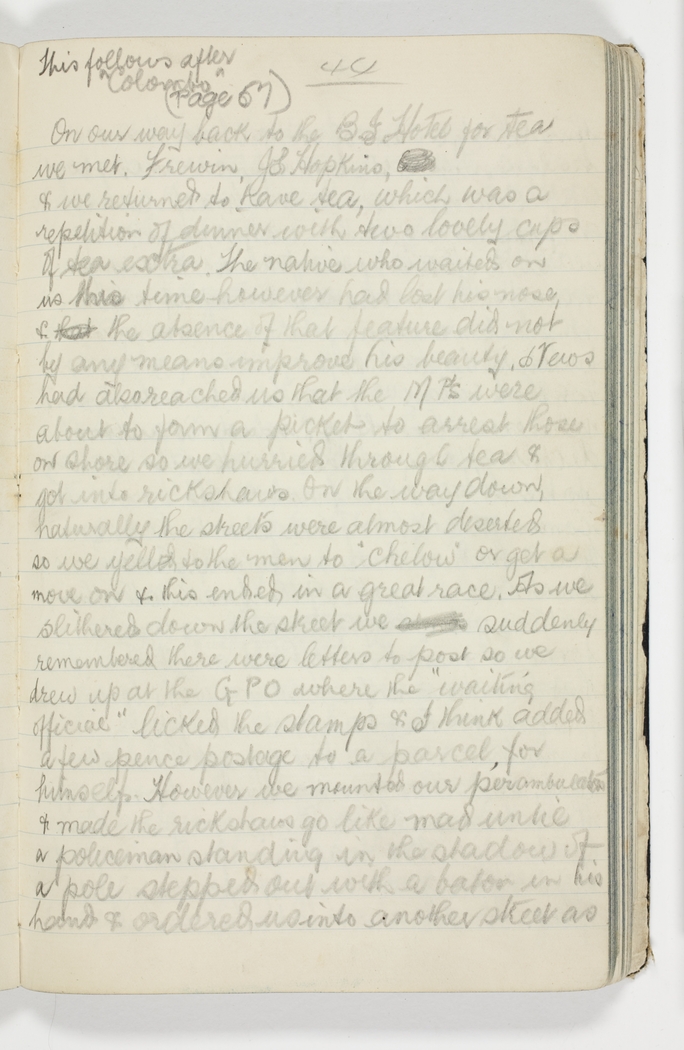 This follows after
"Colombo"
(Page 57)
44
On our way back to the B I Hotel for tea
we met. Frewin, J E Hopkins,
& we returned to have tea, which was a
repetition of dinner with two lovely cups
of tea extra. The native who waited on
us this time however had lost his nose,
& that the absence of that feature did not
by any means improve his beauty. News
had also reached us that the M Ps were
about to form a picket to arrest those
on shore so we hurried through tea &
got into rickshaws. On the way down,
naturally the streets were almost deserted
so we yelled to the men to "chelow" or get a
move on & this ended in a great race. As we
slithered down the street we suddenly
remembered there were letters to post so we
drew up at the G P O where the "waiting
official" licked the stamps & I think added
a few pence postage to a parcel, for
himself. However we mounted our perambulators
& made the rickshaws go like mad until
a policeman standing in the shadow of
a pole stepped out with a baton in his
hand & ordered us into another street as